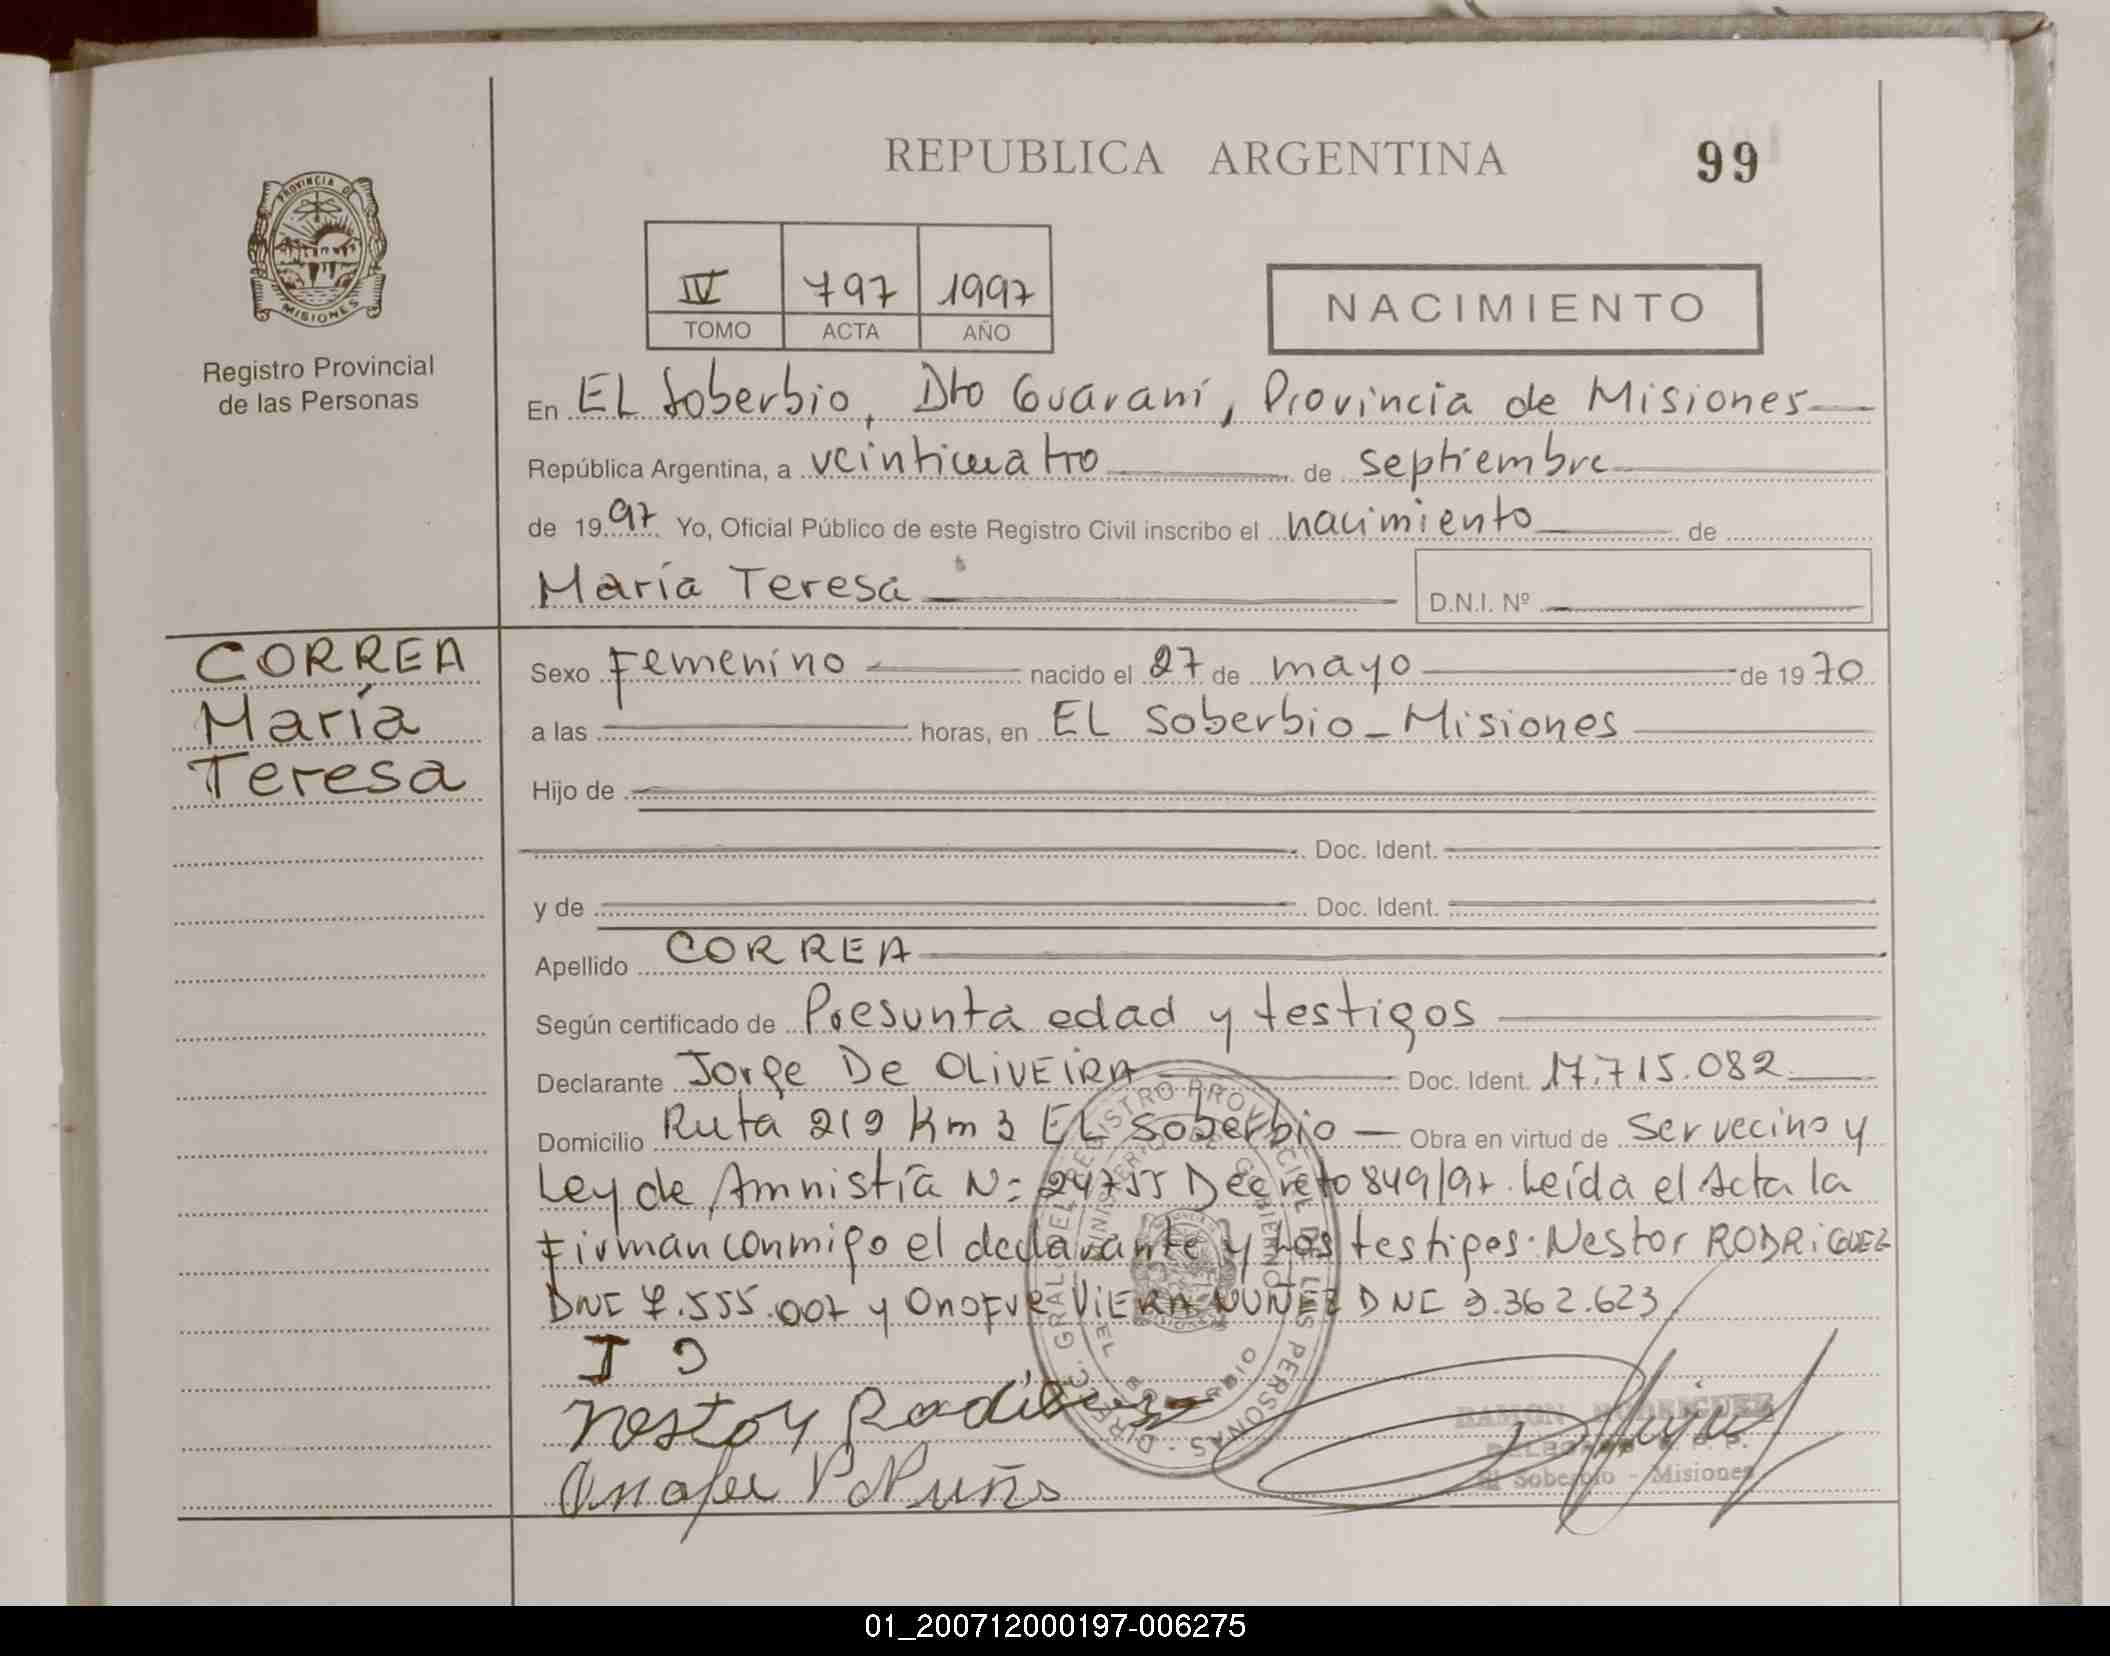 REPUBLICA ARGENTINA
99
PROVINCIA DE
MISIONES
Registro Provincial
de las Personas
IV 797 1997
TOMO ACTA AÑO
NACIMIENTO
En EL Soberbio, Dto Guaraní, Provincia de Misiones
República Argentina, a veinticuatro de septiembre
de 1997 Yo, Oficial Público de este Registro Civil inscribo el nacimiento de
María Teresa
D.N.I. Nº
CORREA
María
Teresa
Sexo Femenino nacido el 27 de mayo de 1970
a las horas, en EL Soberbio - Misiones
Hijo de
Doc. Ident.
y de Doc. Ident.
Apellido CORREA
Según certificado de Presunta edad y testigos
Declarante Jorge De OLIVEIRA Doc. Ident. 17.715.082
Domicilio Ruta 212 Km 3 EL Soberbio - Obra en virtud de Ser vecino y
Ley de Amnistía N: 24755 Decreto 849/97. Leída el Acta la
Firman conmigo el declarante y los testigos: Nestor RODRIGUEZ
DNI 7.555.007 y Onofre VIERA NUÑEZ DNI 9.362.623
DIREC. GRAL. DEL REGISTRO PROVINCIAL DE LAS PERSONAS
MINISTERIO DE GOBIERNO
EL SOBERBIO
J D
Nestor
RAMON RODRIGUEZ
DELEGADO R. P. P.
El Soberbio - Misiones
01_200712000197-006275